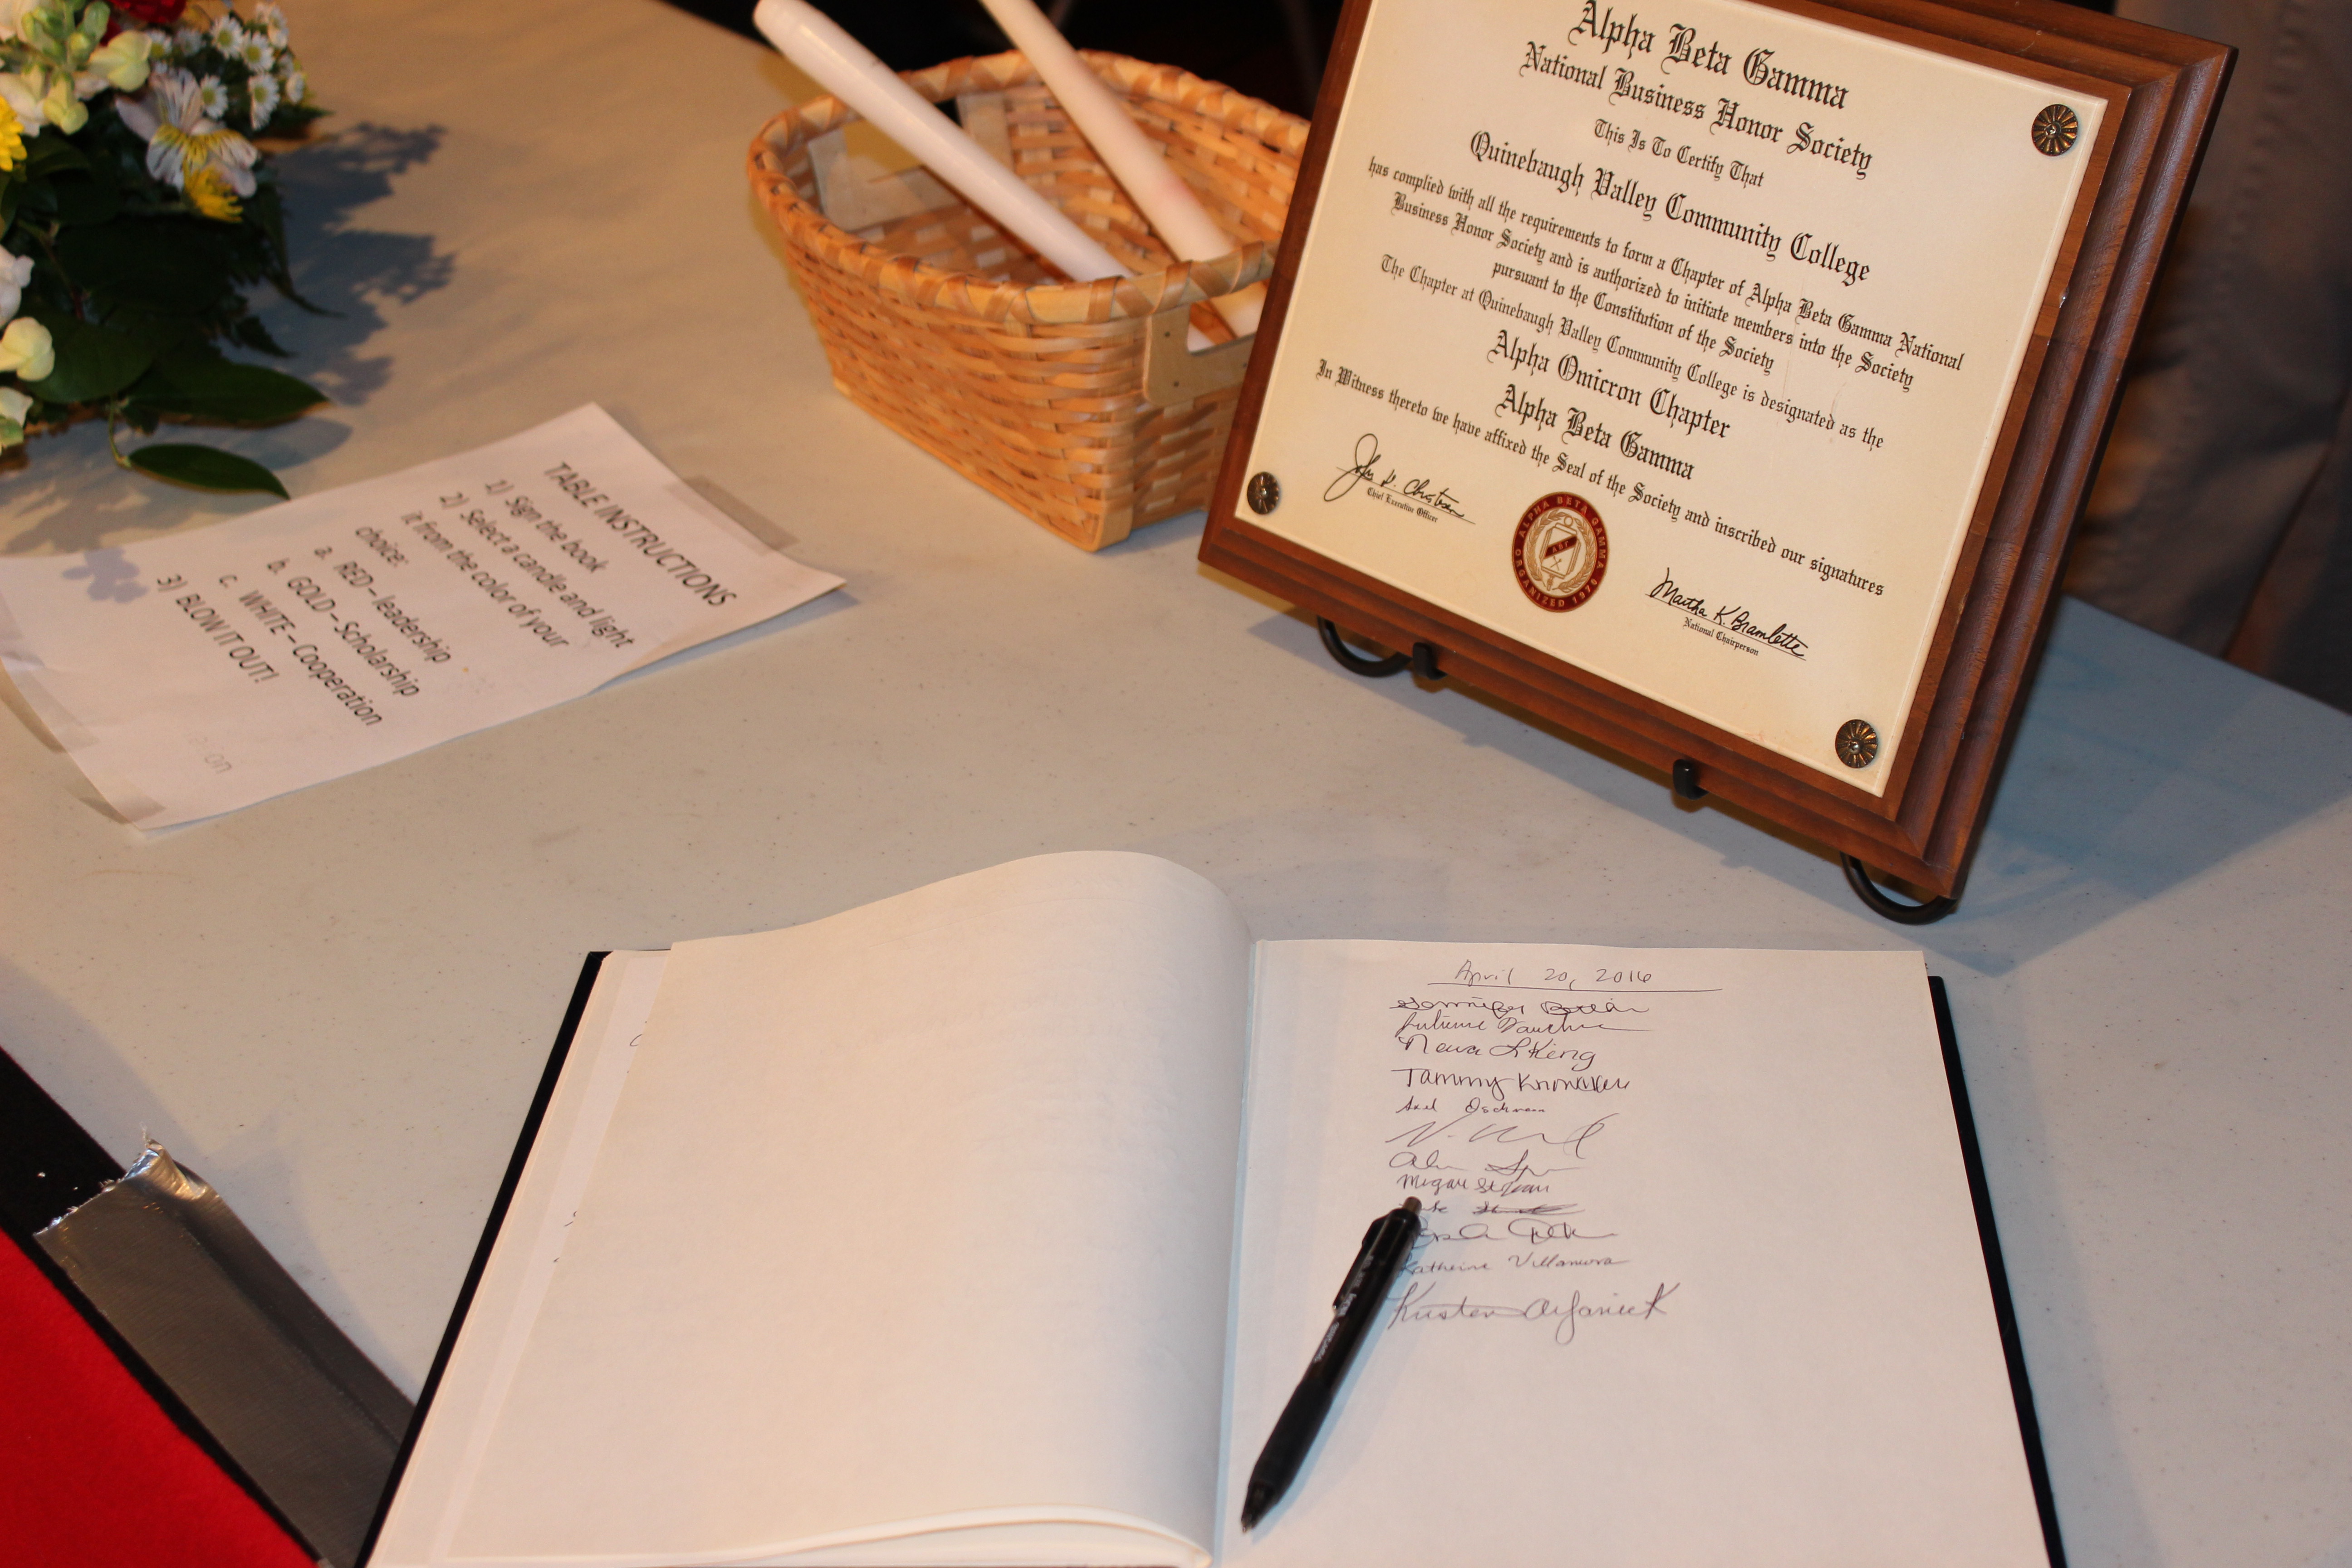 Alpha Beta Gamma
National Business Honor Society
This Is To Certify That
Quinebaugh Valley Community College
has complied with all the requirements to form a Chapter of Alpha Beta Gamma National
Business Honor Society and is authorized to initiate members into the Society
pursuant to the Constitution of the Society
The Chapter at Quinebaugh Valley Community College is designated as the
Alpha Omicron Chapter
Alpha Beta Gamma
In Witness thereto we have affixed the Seal of the Society and inscribed our signatures
Chief Executive Officer
ALPHA BETA GAMMA ORGANIZED 1970
ΑΒΓ
Martha K. Bramlette
National Chairperson
TABLE INSTRUCTIONS
1) Sign the book
2) Select a candle and light
it from the color of your
choice:
a. RED – leadership
b. GOLD – Scholarship
c. WHITE – Cooperation
3) BLOW IT OUT!
April 20, 2016
King
Tammy
Megan
Katherine Villanueva
Kristen